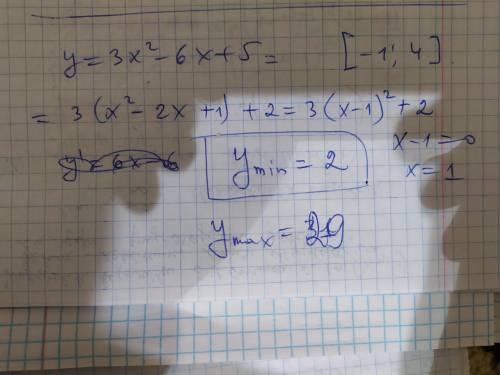 y = 3x² - 6x + 5 = [-1; 4].
= 3(x² - 2x + 1) + 2 = 3(x-1)² + 2
x - 1 = 0
y' = 6x - 6
y min = 2
x = 1
y max = 29